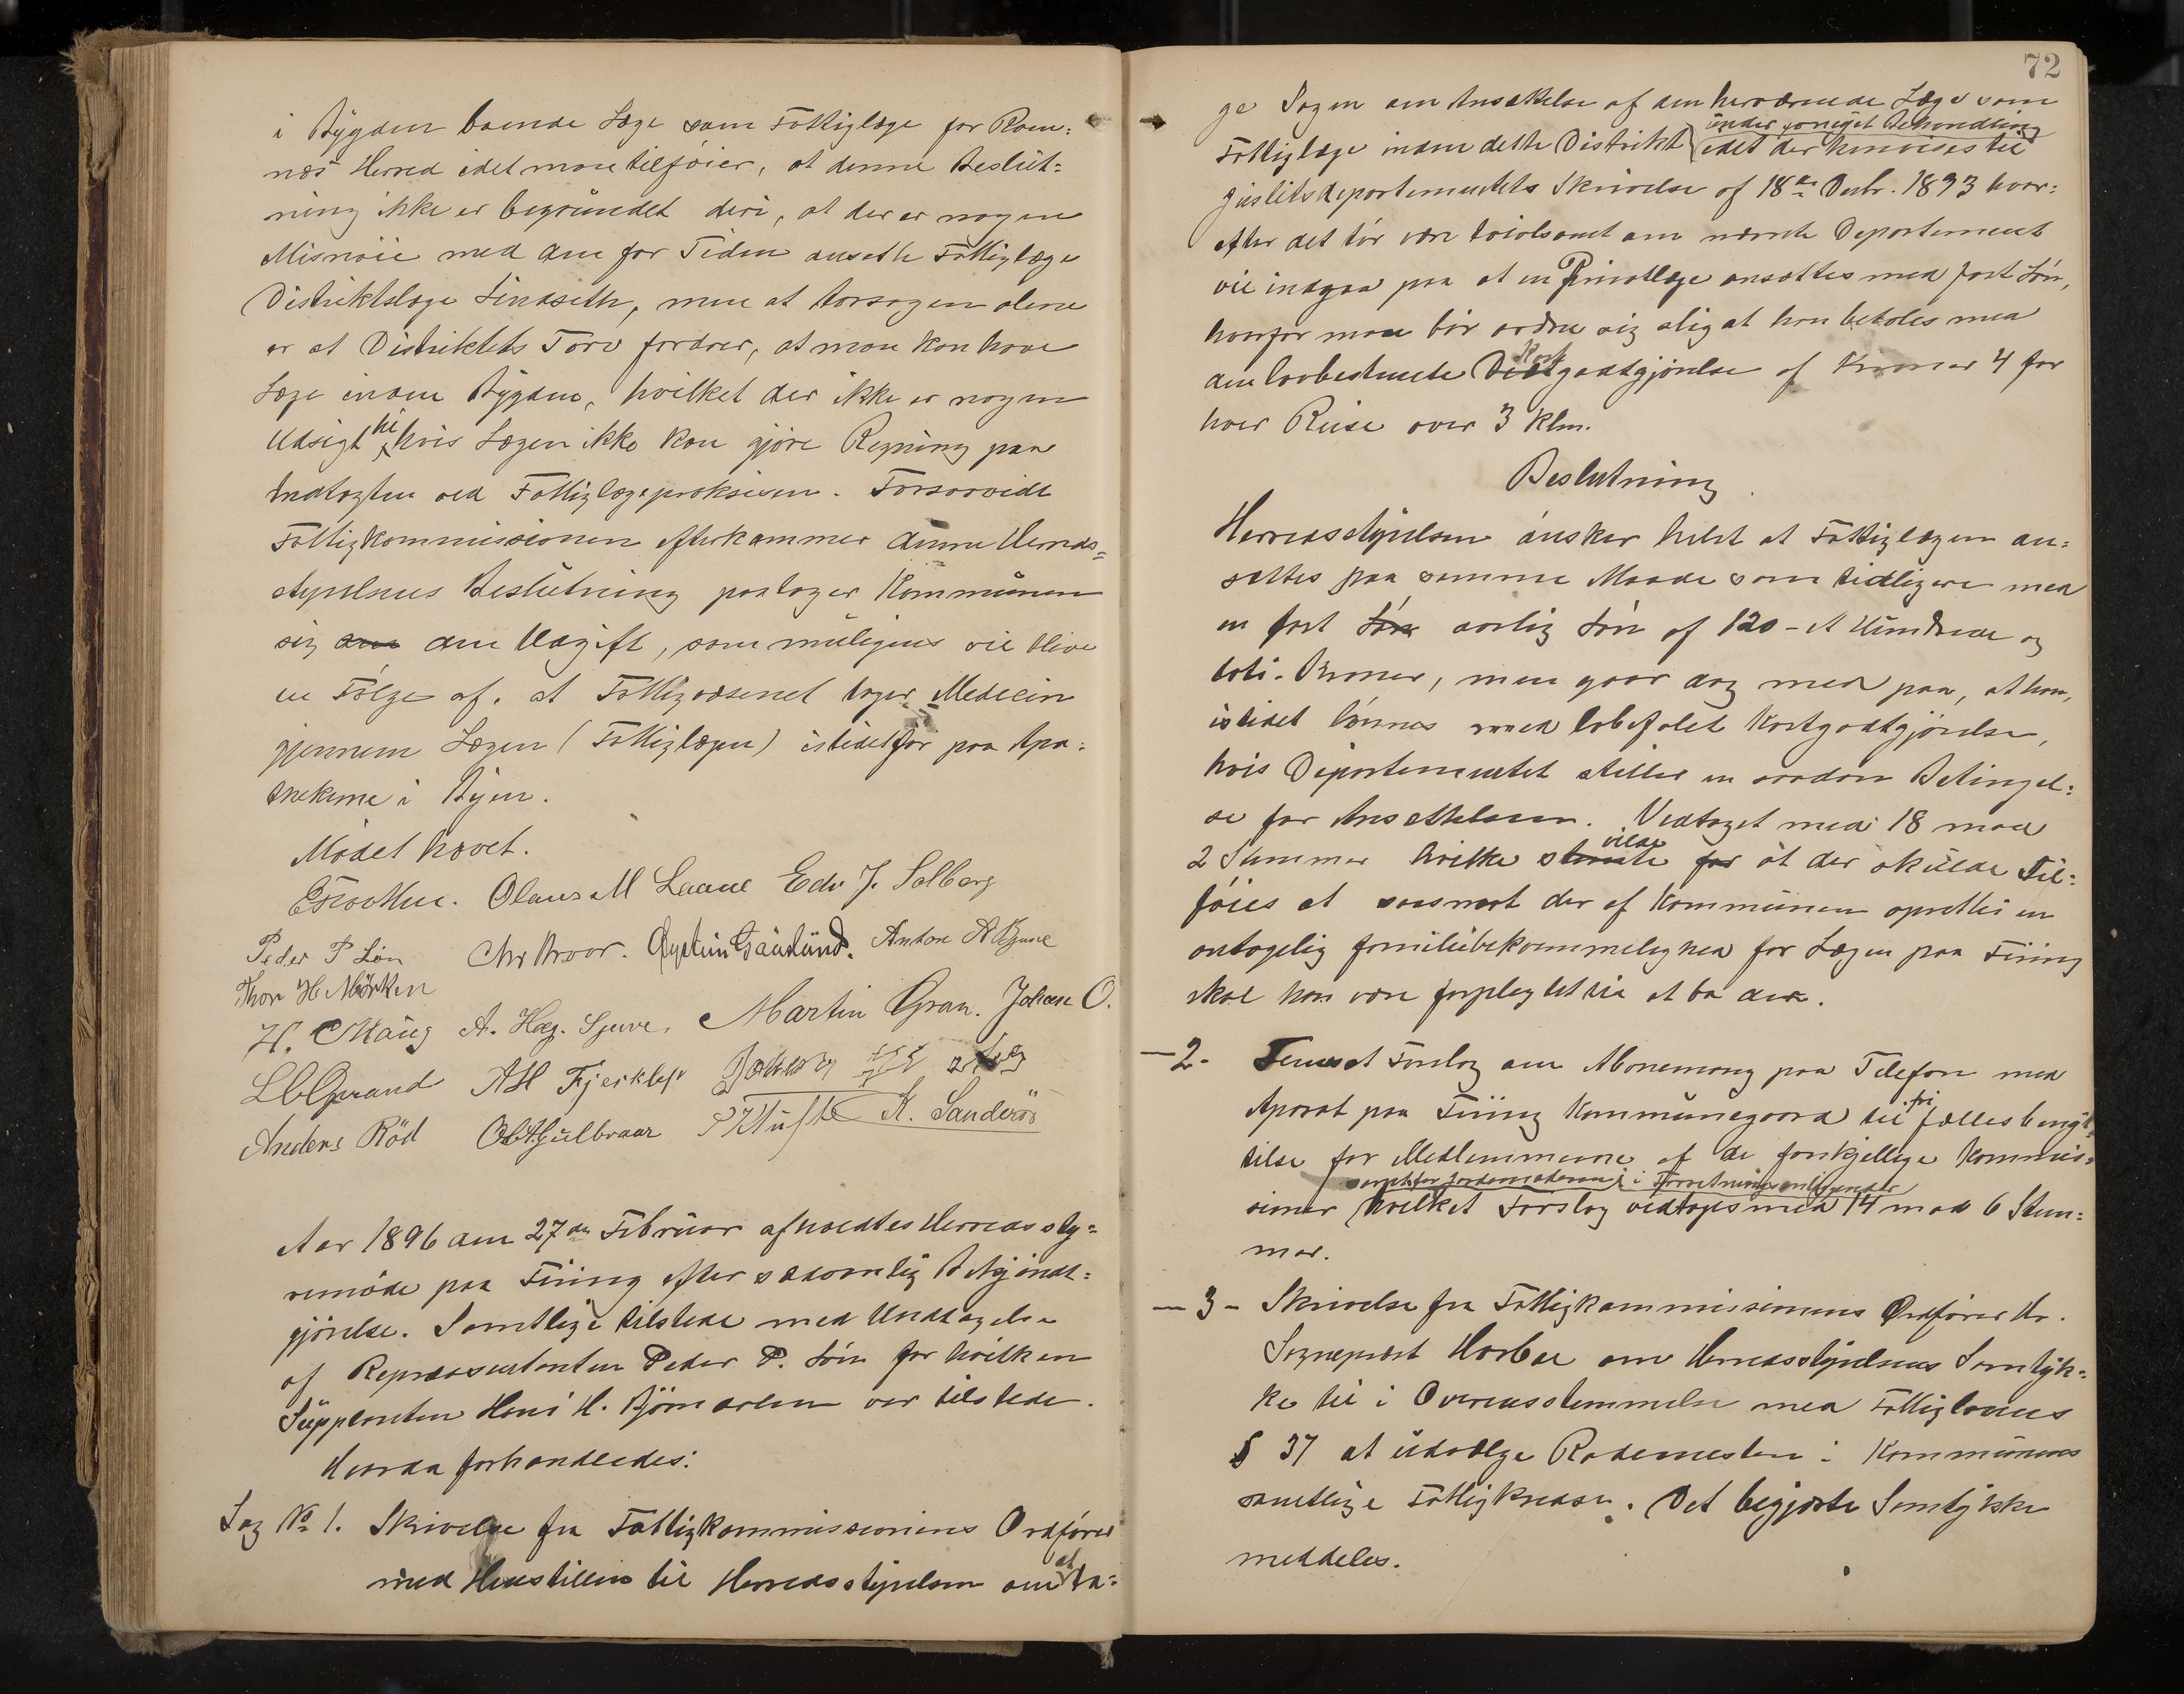 i Bygden boende Læge som Fattiglæge for Ram=
næs Herred idet man tilføier, at denne Beslut=
ning ikke er begrundet deri, at der er nogen
Misnøie med den for Tiden ansatte Fattiglæge
Distriktslæge Lindseth, men at Aarsagen alene
er at Distriktets Tarv fordrer, at man kan have
Læge inden Bygden, hvilket der ikke er nogen
Udsigt til hvis Lægen ikke kan gjøre Regning paa
Indtægten ved Fattiglægepraksisen. Forsaavidt
Fattigkommissionen efterkommer denne Herreds=
styrelsens Beslutning paatager Kommunen
sig den Udgift, som muligens vil blive
en Følge af, at Fattigvæsenet tager Medicin
gjennem Lægen (Fattiglægen) istedetfor paa Apo=
thekerne i Byen.
Mødet hævet.
Olaus M Laane Edv J. Solberg
Peder P Løn Chr Kroor. Øystein Gaaslund. Anton A Bjune
Thor H Mørken
H. C Haug A. Hag. Sjuve, Martin Gran. Johan O.
A H Fjerkløp
Anders Rød O A Gulbraar K. Sanderød
Aar 1896 den 27de Februar afholdtes Herredssty=
remøde paa Fiung efter sædvanlig Bekjendt=
gjørelse. Samtlige tilstede med Undtagelse
af Repræsentanten Peder P. Løn for hvilken
Suppleanten Hans H. Bjørndalen var tilstede.
Hvorda forhandledes:
Sag No 1. Skrivelse fra Fattigkommissionens Ordfører
med Henstillen til Herredsstyrelsen om at ta=
72
ge Sagen om Ansættelse af den herværende Læge som
under fornyet Behandling
Fattiglæge inden dette Distrikt idet der henvises til
Justitsdepartementets Skrivelse af 18de Decbr. 1893 hvor=
efter det tør være tvivlsomt om nævnte Departement
vil indgaa paa at en Privatlæge ansættes med fast Løn,
hvorfor man bør ordne sig slig at han betales med
den lovbestemte Kost Diætgodtgjørelse af Kroner 4 for
hver Reise over 3 Klm.
Beslutning
Herredsstyrelsen ønsker helst at Fattiglægen an=
sættes paa samme Maade som tidligere med
en fast Løn aarlig Løn af 120 - et Hundrede og
tyve - Kroner, men gaar dog med paa, at han,
istedet lønnes med lovbefalet Kostgodtgjørelse,
hvis Departementet stiller en saadan Betingel=
se for Ansættelsen. Vedtaget med 18 mod
2 Stemmer hvilke stemte vilde for at der skulde Til=
føies at saasnart der af Kommunen oprettes en
antagelig familiebekvemmelighed for Lægen paa Fiung
skal han være forpligtet til at bo der.
- 2 - Forslag om Abonnement paa Telefon med
Aparat paa Fiung Kommunegaard til fri fælles benyt=
telse for Medlemmerne af de forskjellige Kommis=
samt for Jordemoderen i Forretningsanliggender
sioner hvilket Forslag vedtoges med 14 mod 6 Stem=
mer.
- 3 - Skrivelse fra Fattigkommissionens Ordfører Hr.
Sogneprest Horboe om Herredsstyrelsens Samtyk=
ke til i Overensstemmelse med Fattiglovens
§ 37 at udvælge Rodemestere i Kommunens
samtlige Fattigkredse. Det begjærte Samtykke
meddeles.